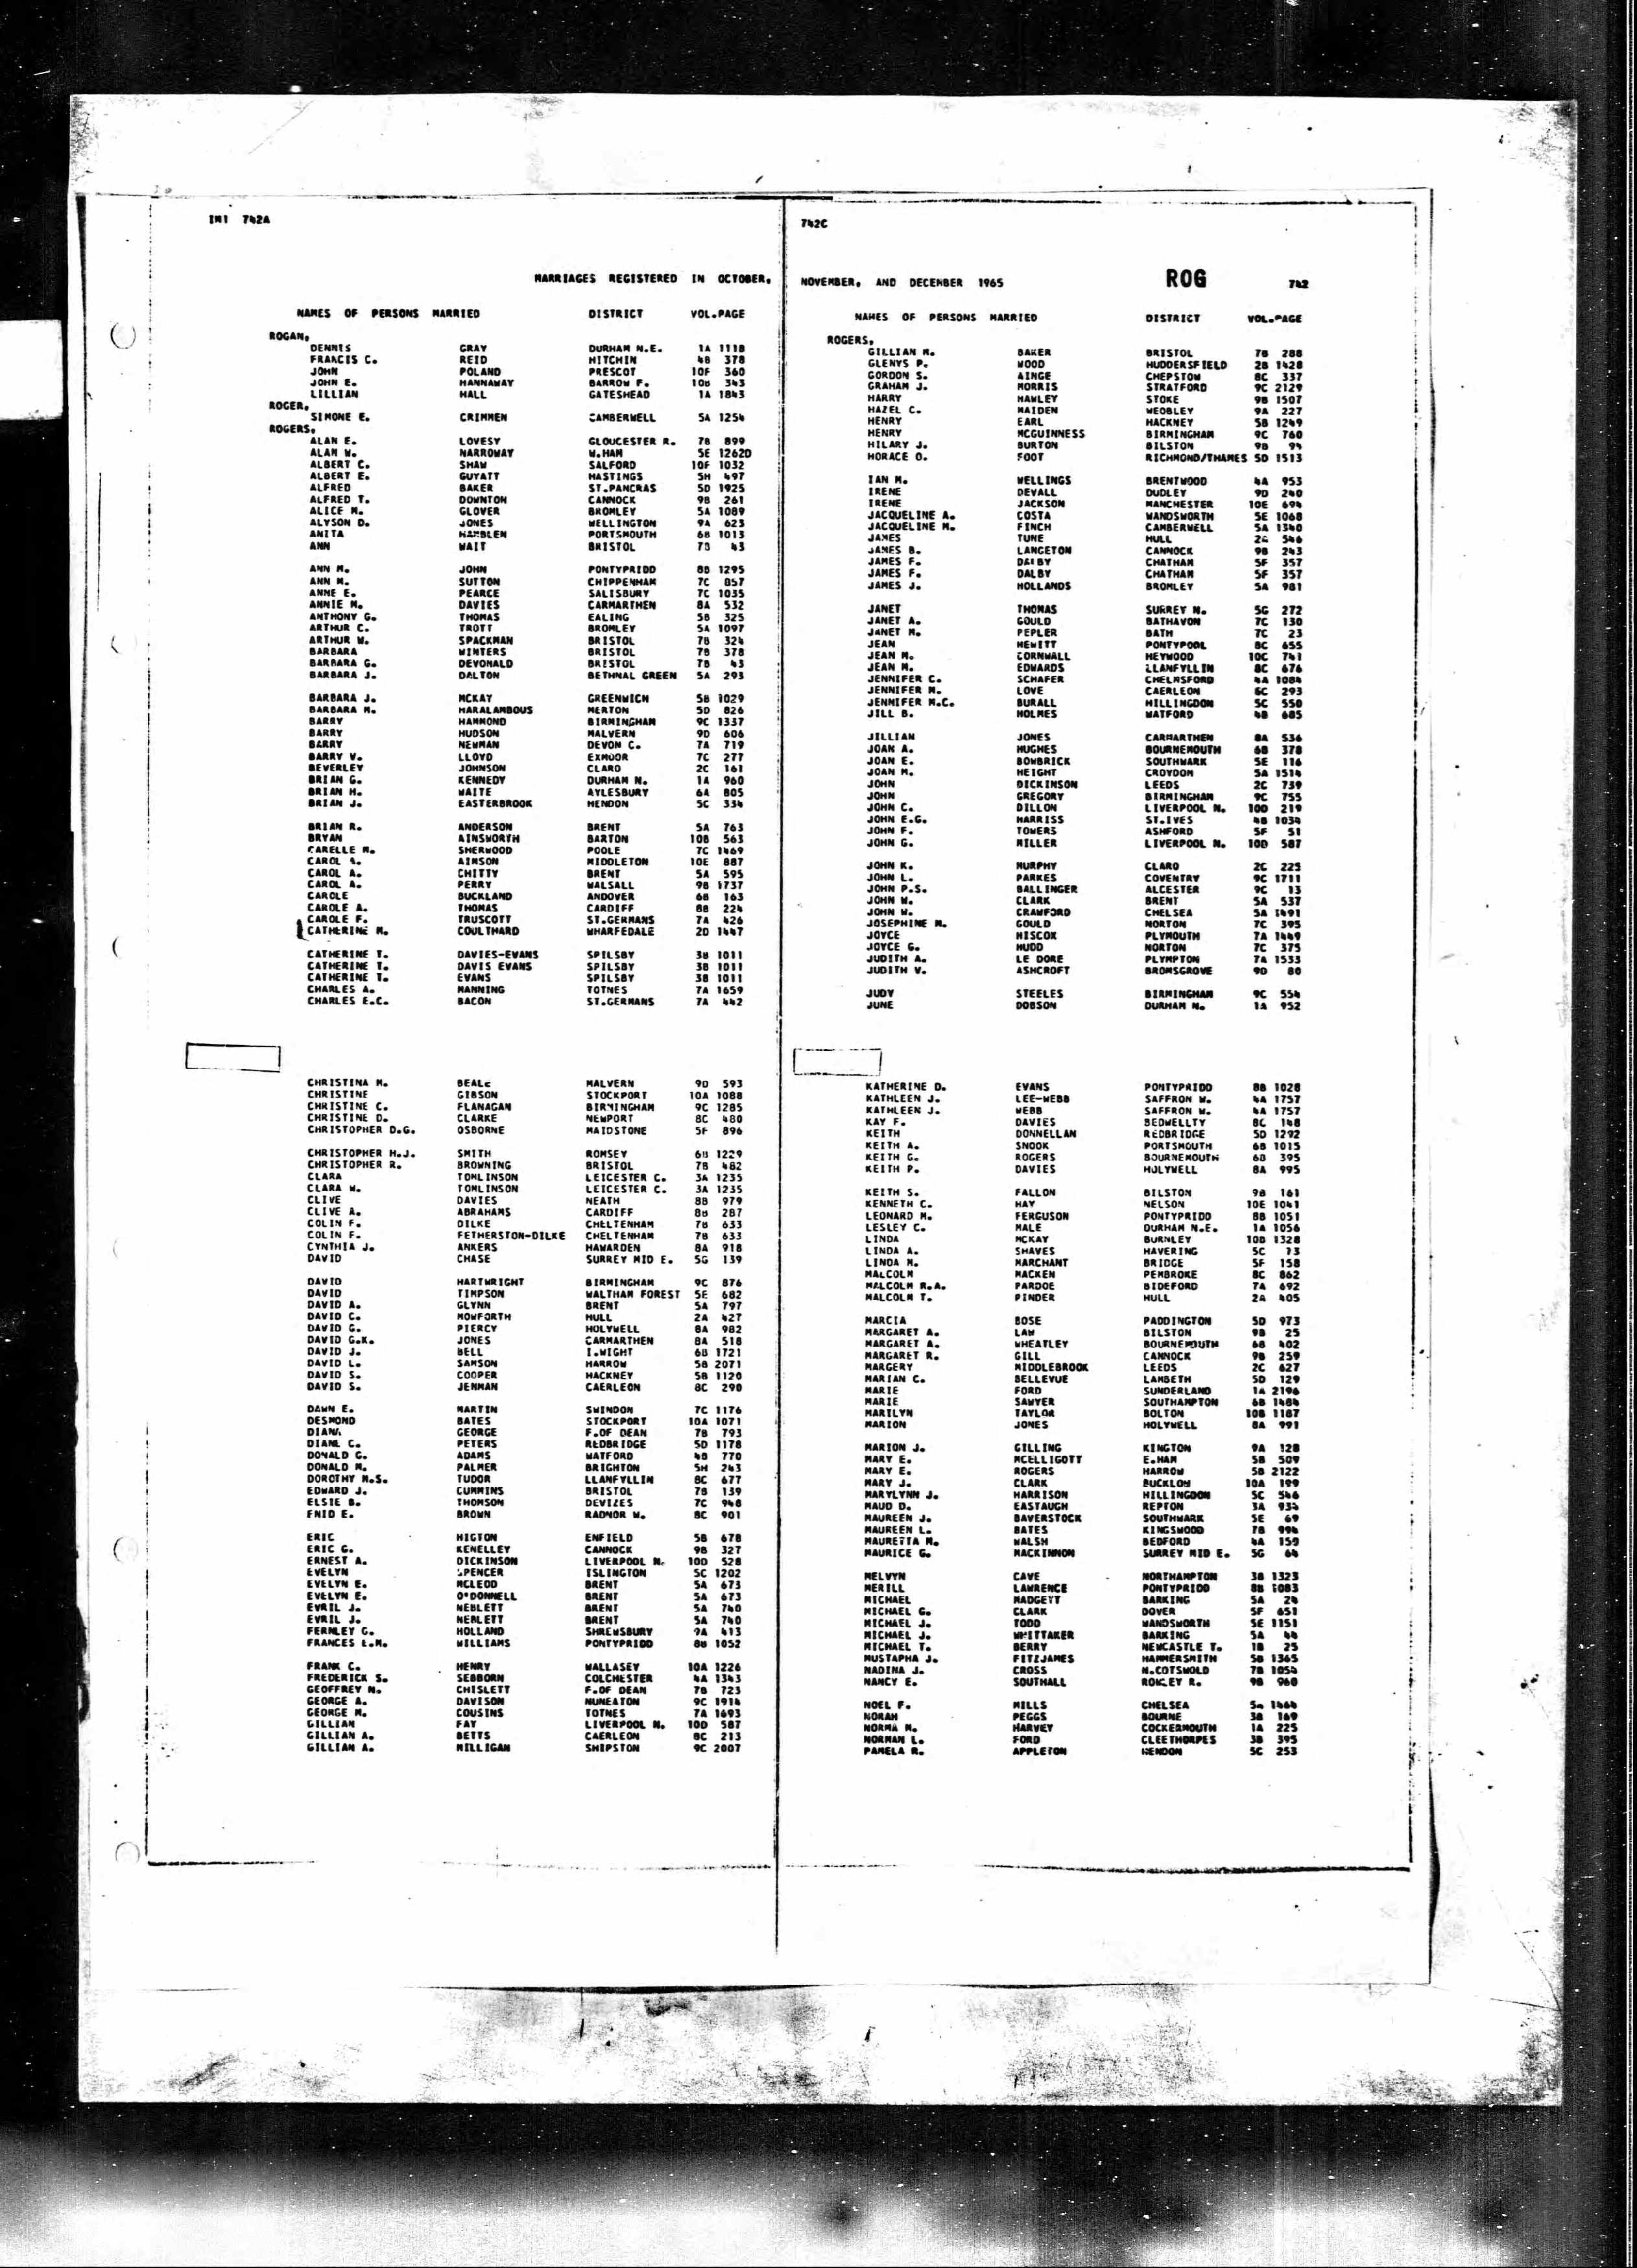 IN1 742A
MARRIAGES REGISTERED IN OCTOBER,
NAMES OF PERSONS MARRIED DISTRICT VOL.PAGE
ROGAN,
DENNIS GRAY DURHAM N.E. 1A 1118
FRANCIS C. REID HITCHIN 4B 378
JOHN POLAND PRESCOT 10F 360
JOHN E. HANNAWAY BARROW F. 10B 343
LILLIAN HALL GATESHEAD 1A 1843
ROGER,
SIMONE E. CRIMMEN CAMBERWELL 5A 1254
ROGERS,
ALAN E. LOVESY GLOUCESTER R. 7B 899
ALAN W. NARROWAY W.HAM 5E 1262D
ALBERT C. SHAW SALFORD 10F 1032
ALBERT E. GUYATT HASTINGS 5H 497
ALFRED BAKER ST.PANCRAS 5D 1925
ALFRED T. DOWNTON CANNOCK 9B 261
ALICE M. GLOVER BROMLEY 5A 1089
ALYSON D. JONES WELLINGTON 9A 623
ANITA HAMBLEN PORTSMOUTH 6B 1013
ANN WAIT BRISTOL 7B 43
ANN M. JOHN PONTYPRIDD 8B 1295
ANN M. SUTTON CHIPPENHAM 7C 857
ANNE E. PEARCE SALISBURY 7C 1035
ANNIE M. DAVIES CARMARTHEN 8A 532
ANTHONY G. THOMAS EALING 5B 325
ARTHUR C. TROTT BROMLEY 5A 1097
ARTHUR W. SPACKMAN BRISTOL 7B 324
BARBARA WINTERS BRISTOL 7B 378
BARBARA G. DEVONALD BRISTOL 7B 43
BARBARA J. DALTON BETHNAL GREEN 5A 293
BARBARA J. MCKAY GREENWICH 5B 1029
BARBARA M. HARALAMBOUS MERTON 5D 826
BARRY HAMMOND BIRMINGHAM 9C 1337
BARRY HUDSON MALVERN 9D 606
BARRY NEWMAN DEVON C. 7A 719
BARRY V. LLOYD EXMOOR 7C 277
BEVERLEY JOHNSON CLARO 2C 161
BRIAN G. KENNEDY DURHAM N. 1A 960
BRIAN H. WAITE AYLESBURY 6A 805
BRIAN J. EASTERBROOK HENDON 5C 334
BRIAN R. ANDERSON BRENT 5A 763
BRYAN AINSWORTH BARTON 10B 563
CARELLE M. SHERWOOD POOLE 7C 1469
CAROL A. AINSON MIDDLETON 10E 887
CAROL A. CHITTY BRENT 5A 595
CAROL A. PERRY WALSALL 9B 1737
CAROLE BUCKLAND ANDOVER 6B 163
CAROLE A. THOMAS CARDIFF 8B 224
CAROLE F. TRUSCOTT ST.GERMANS 7A 426
CATHERINE M. COULTHARD WHARFEDALE 2D 1447
CATHERINE T. DAVIES-EVANS SPILSBY 3B 1011
CATHERINE T. DAVIS EVANS SPILSBY 3B 1011
CATHERINE T. EVANS SPILSBY 3B 1011
CHARLES A. MANNING TOTNES 7A 1659
CHARLES E.C. BACON ST.GERMANS 7A 442
CHRISTINA M. BEALE MALVERN 9D 593
CHRISTINE GIBSON STOCKPORT 10A 1088
CHRISTINE C. FLANAGAN BIRMINGHAM 9C 1285
CHRISTINE D. CLARKE NEWPORT 8C 480
CHRISTOPHER D.G. OSBORNE MAIDSTONE 5F 896
CHRISTOPHER H.J. SMITH ROMSEY 6B 1229
CHRISTOPHER R. BROWNING BRISTOL 7B 482
CLARA TOMLINSON LEICESTER C. 3A 1235
CLARA W. TOMLINSON LEICESTER C. 3A 1235
CLIVE DAVIES NEATH 8B 979
CLIVE A. ABRAHAMS CARDIFF 8B 287
COLIN F. DILKE CHELTENHAM 7B 633
COLIN F. FETHERSTON-DILKE CHELTENHAM 7B 633
CYNTHIA J. ANKERS HAWARDEN 8A 918
DAVID CHASE SURREY MID E. 5G 139
DAVID HARTWRIGHT BIRMINGHAM 9C 876
DAVID TIMPSON WALTHAM FOREST 5E 682
DAVID A. GLYNN BRENT 5A 797
DAVID C. HOWFORTH HULL 2A 427
DAVID G. PIERCY HOLYWELL 8A 982
DAVID G.K. JONES CARMARTHEN 8A 518
DAVID J. BELL I.WIGHT 6B 1721
DAVID L. SAMSON HARROW 5B 2071
DAVID S. COOPER HACKNEY 5B 1120
DAVID S. JENMAN CAERLEON 8C 290
DAWN E. MARTIN SWINDON 7C 1176
DESMOND BATES STOCKPORT 10A 1071
DIANA GEORGE F.OF DEAN 7B 793
DIANE C. PETERS REDBRIDGE 5D 1178
DONALD G. ADAMS WATFORD 4B 770
DONALD M. PALMER BRIGHTON 5H 243
DOROTHY M.S. TUDOR LLANFYLLIN 8C 677
EDWARD J. CUMMINS BRISTOL 7B 139
ELSIE B. THOMSON DEVIZES 7C 948
ENID E. BROWN RADNOR W. 8C 901
ERIC HIGTON ENFIELD 5B 678
ERIC G. KENELLEY CANNOCK 9B 327
ERNEST A. DICKINSON LIVERPOOL N. 10D 528
EVELYN SPENCER ISLINGTON 5C 1202
EVELYN E. MCLEOD BRENT 5A 673
EVELYN E. O'DONNELL BRENT 5A 673
EVRIL J. NEBLETT BRENT 5A 740
EVRIL J. NERLETT BRENT 5A 740
FERNLEY G. HOLLAND SHREWSBURY 9A 413
FRANCES L.M. WILLIAMS PONTYPRIDD 8B 1052
FRANK C. HENRY WALLASEY 10A 1226
FREDERICK S. SEBBORN COLCHESTER 4A 1343
GEOFFREY M. CHISLETT F.OF DEAN 7B 723
GEORGE A. DAVISON NUNEATON 9C 1914
GEORGE M. COUSINS TOTNES 7A 1693
GILLIAN FAY LIVERPOOL N. 10D 587
GILLIAN A. BETTS CAERLEON 8C 213
GILLIAN A. MILLIGAN SHIPSTON 9C 2007
742C
NOVEMBER, AND DECEMBER 1965 ROG 742
NAMES OF PERSONS MARRIED DISTRICT VOL.PAGE
ROGERS,
GILLIAN M. BAKER BRISTOL 7B 288
GLENYS P. WOOD HUDDERSFIELD 2B 1428
GORDON S. AINGE CHEPSTOW 8C 337
GRAHAM J. MORRIS STRATFORD 9C 2129
HARRY HAWLEY STOKE 9B 1507
HAZEL C. MAIDEN WEOBLEY 9A 227
HENRY EARL HACKNEY 5B 1249
HENRY MCGUINNESS BIRMINGHAM 9C 760
HILARY J. BURTON BILSTON 9B 94
HORACE O. FOOT RICHMOND/THAMES 5D 1513
IAN M. WELLINGS BRENTWOOD 4A 953
IRENE DEVALL DUDLEY 9D 240
IRENE JACKSON MANCHESTER 10E 694
JACQUELINE A. COSTA WANDSWORTH 5E 1068
JACQUELINE M. FINCH CAMBERWELL 5A 1340
JAMES TUNE HULL 2A 546
JAMES B. LANGETON CANNOCK 9B 243
JAMES F. DAIBY CHATHAM 5F 357
JAMES F. DALBY CHATHAM 5F 357
JAMES J. HOLLANDS BROMLEY 5A 981
JANET THOMAS SURREY N. 5G 272
JANET A. GOULD BATHAVON 7C 130
JANET M. PEPLER BATH 7C 23
JEAN HEWITT PONTYPOOL 8C 655
JEAN M. CORNWALL HEYWOOD 10C 741
JEAN M. EDWARDS LLANFYLLIN 8C 676
JENNIFER C. SCHAFER CHELMSFORD 4A 1084
JENNIFER M. LOVE CAERLEON 8C 293
JENNIFER M.C. BURALL HILLINGDON 5C 550
JILL B. HOLMES WATFORD 4B 685
JILLIAN JONES CARMARTHEN 8A 536
JOAN A. HUGHES BOURNEMOUTH 6B 378
JOAN E. BOWBRICK SOUTHWARK 5E 116
JOAN M. HEIGHT CROYDON 5A 1514
JOHN DICKINSON LEEDS 2C 739
JOHN GREGORY BIRMINGHAM 9C 755
JOHN C. DILLON LIVERPOOL N. 10D 219
JOHN E.G. HARRISS ST.IVES 4B 1034
JOHN F. TOWERS ASHFORD 5F 51
JOHN G. MILLER LIVERPOOL N. 10D 587
JOHN K. MURPHY CLARO 2C 225
JOHN L. PARKES COVENTRY 9C 1711
JOHN P.S. BALLINGER ALCESTER 9C 13
JOHN W. CLARK BRENT 5A 537
JOHN W. CRAWFORD CHELSEA 5A 1491
JOSEPHINE M. GOULD NORTON 7C 395
JOYCE HISCOX PLYMOUTH 7A 1449
JOYCE G. HUDD NORTON 7C 375
JUDITH A. LE DORE PLYMPTON 7A 1533
JUDITH V. ASHCROFT BROMSGROVE 9D 80
JUDY STEELES BIRMINGHAM 9C 554
JUNE DOBSON DURHAM N. 1A 952
KATHERINE D. EVANS PONTYPRIDD 8B 1028
KATHLEEN J. LEE-WEBB SAFFRON W. 4A 1757
KATHLEEN J. WEBB SAFFRON W. 4A 1757
KAY F. DAVIES BEDWELLTY 8C 148
KEITH DONNELLAN REDBRIDGE 5D 1292
KEITH A. SNOOK PORTSMOUTH 6B 1015
KEITH G. ROGERS BOURNEMOUTH 6B 395
KEITH P. DAVIES HOLYWELL 8A 995
KEITH S. FALLON BILSTON 9B 161
KENNETH C. HAY NELSON 10E 1041
LEONARD M. FERGUSON PONTYPRIDD 8B 1051
LESLEY C. MALE DURHAM N.E. 1A 1056
LINDA MCKAY BURNLEY 10B 1328
LINDA A. SHAVES HAVERING 5C 73
LINDA M. MARCHANT BRIDGE 5F 158
MALCOLM MACKEN PEMBROKE 8C 862
MALCOLM R.A. PARDOE BIDEFORD 7A 692
MALCOLM T. PINDER HULL 2A 405
MARCIA BOSE PADDINGTON 5D 973
MARGARET A. LAW BILSTON 9B 25
MARGARET A. WHEATLEY BOURNEMOUTH 6B 402
MARGARET R. GILL CANNOCK 9B 259
MARGERY MIDDLEBROOK LEEDS 2C 627
MARIAN C. BELLEVUE LAMBETH 5D 129
MARIE FORD SUNDERLAND 1A 2196
MARIE SAWYER SOUTHAMPTON 6B 1484
MARILYN TAYLOR BOLTON 10B 1187
MARION JONES HOLYWELL 8A 991
MARION J. GILLING KINGTON 9A 128
MARY E. MCELLIGOTT E.HAM 5B 509
MARY E. ROGERS HARROW 5B 2122
MARY J. CLARK BUCKLOW 10A 199
MARYLYNN J. HARRISON HILLINGDON 5C 546
MAUD D. EASTAUGH REPTON 3A 934
MAUREEN J. BAVERSTOCK SOUTHWARK 5E 69
MAUREEN L. BATES KINGSWOOD 7B 994
MAURETTA M. WALSH BEDFORD 4A 159
MAURICE G. MACKINNON SURREY MID E. 5G 64
MELVYN CAVE NORTHAMPTON 3B 1323
MERILL LAWRENCE PONTYPRIDD 8B 1083
MICHAEL MADGETT BARKING 5A 24
MICHAEL G. CLARK DOVER 5F 651
MICHAEL J. TODD WANDSWORTH 5E 1151
MICHAEL J. WHITTAKER BARKING 5A 44
MICHAEL T. BERRY NEWCASTLE T. 1B 25
MUSTAPHA J. FITZJAMES HAMMERSMITH 5B 1365
NADINA J. CROSS N.COTSWOLD 7B 1054
NANCY E. SOUTHALL ROWLEY R. 9B 960
NOEL F. MILLS CHELSEA 5A 1464
NORAH PEGGS BOURNE 3B 169
NORMA M. HARVEY COCKERMOUTH 1A 225
NORMAN L. FORD CLEETHORPES 3B 395
PAMELA R. APPLETON HENDON 5C 253